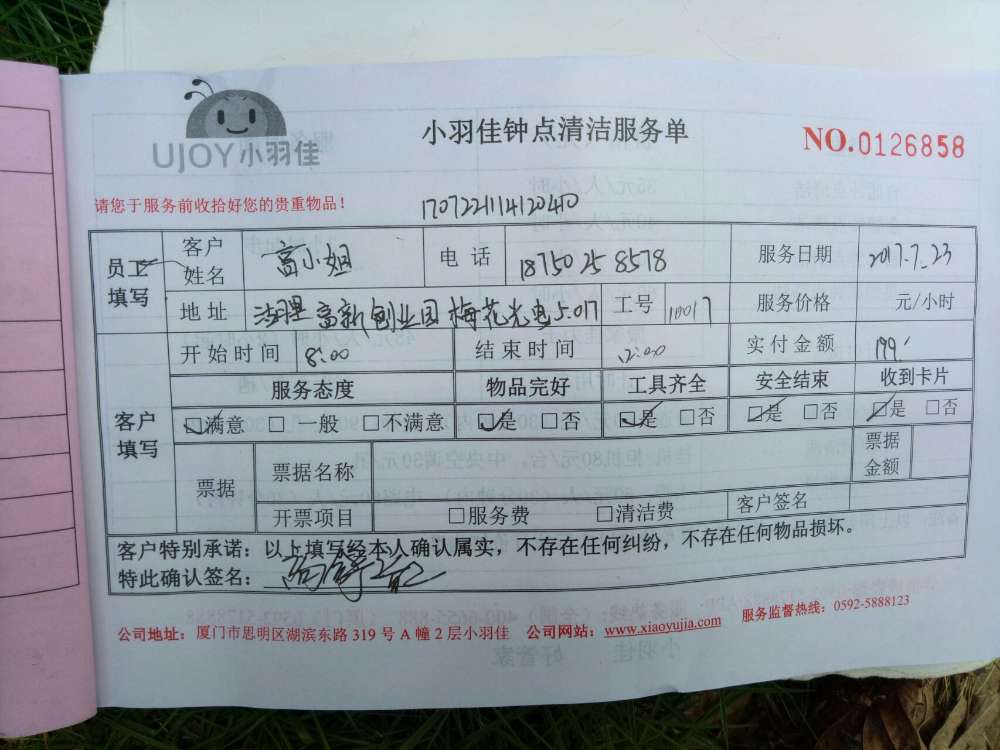 UJOY小羽佳
小羽佳钟点清洁服务单
NO.0126858
请您于服务前收拾好您的贵重物品！
170722114120410
员工填写 客户姓名 高小姐 电话 18750258578 服务日期 2017.7.23
地址 高新创业园 梅花光电5.017 工号 10017 服务价格 元/小时
客户填写 开始时间 8:00 结束时间 12:00 实付金额 199.
服务态度 物品完好 工具齐全 安全结束 收到卡片
☑满意 □一般 □不满意 ☑是 □否 ☑是 □否 ☑是 □否 ☑是 □否
票据 票据名称 票据金额
开票项目 □服务费 □清洁费 客户签名
客户特别承诺：以上填写经本人确认属实，不存在任何纠纷，不存在任何物品损坏。
特此确认签名：
公司地址：厦门市思明区湖滨东路 319 号 A 幢 2 层小羽佳 公司网站：www.xiaoyujia.com 服务监督热线：0592-5888123